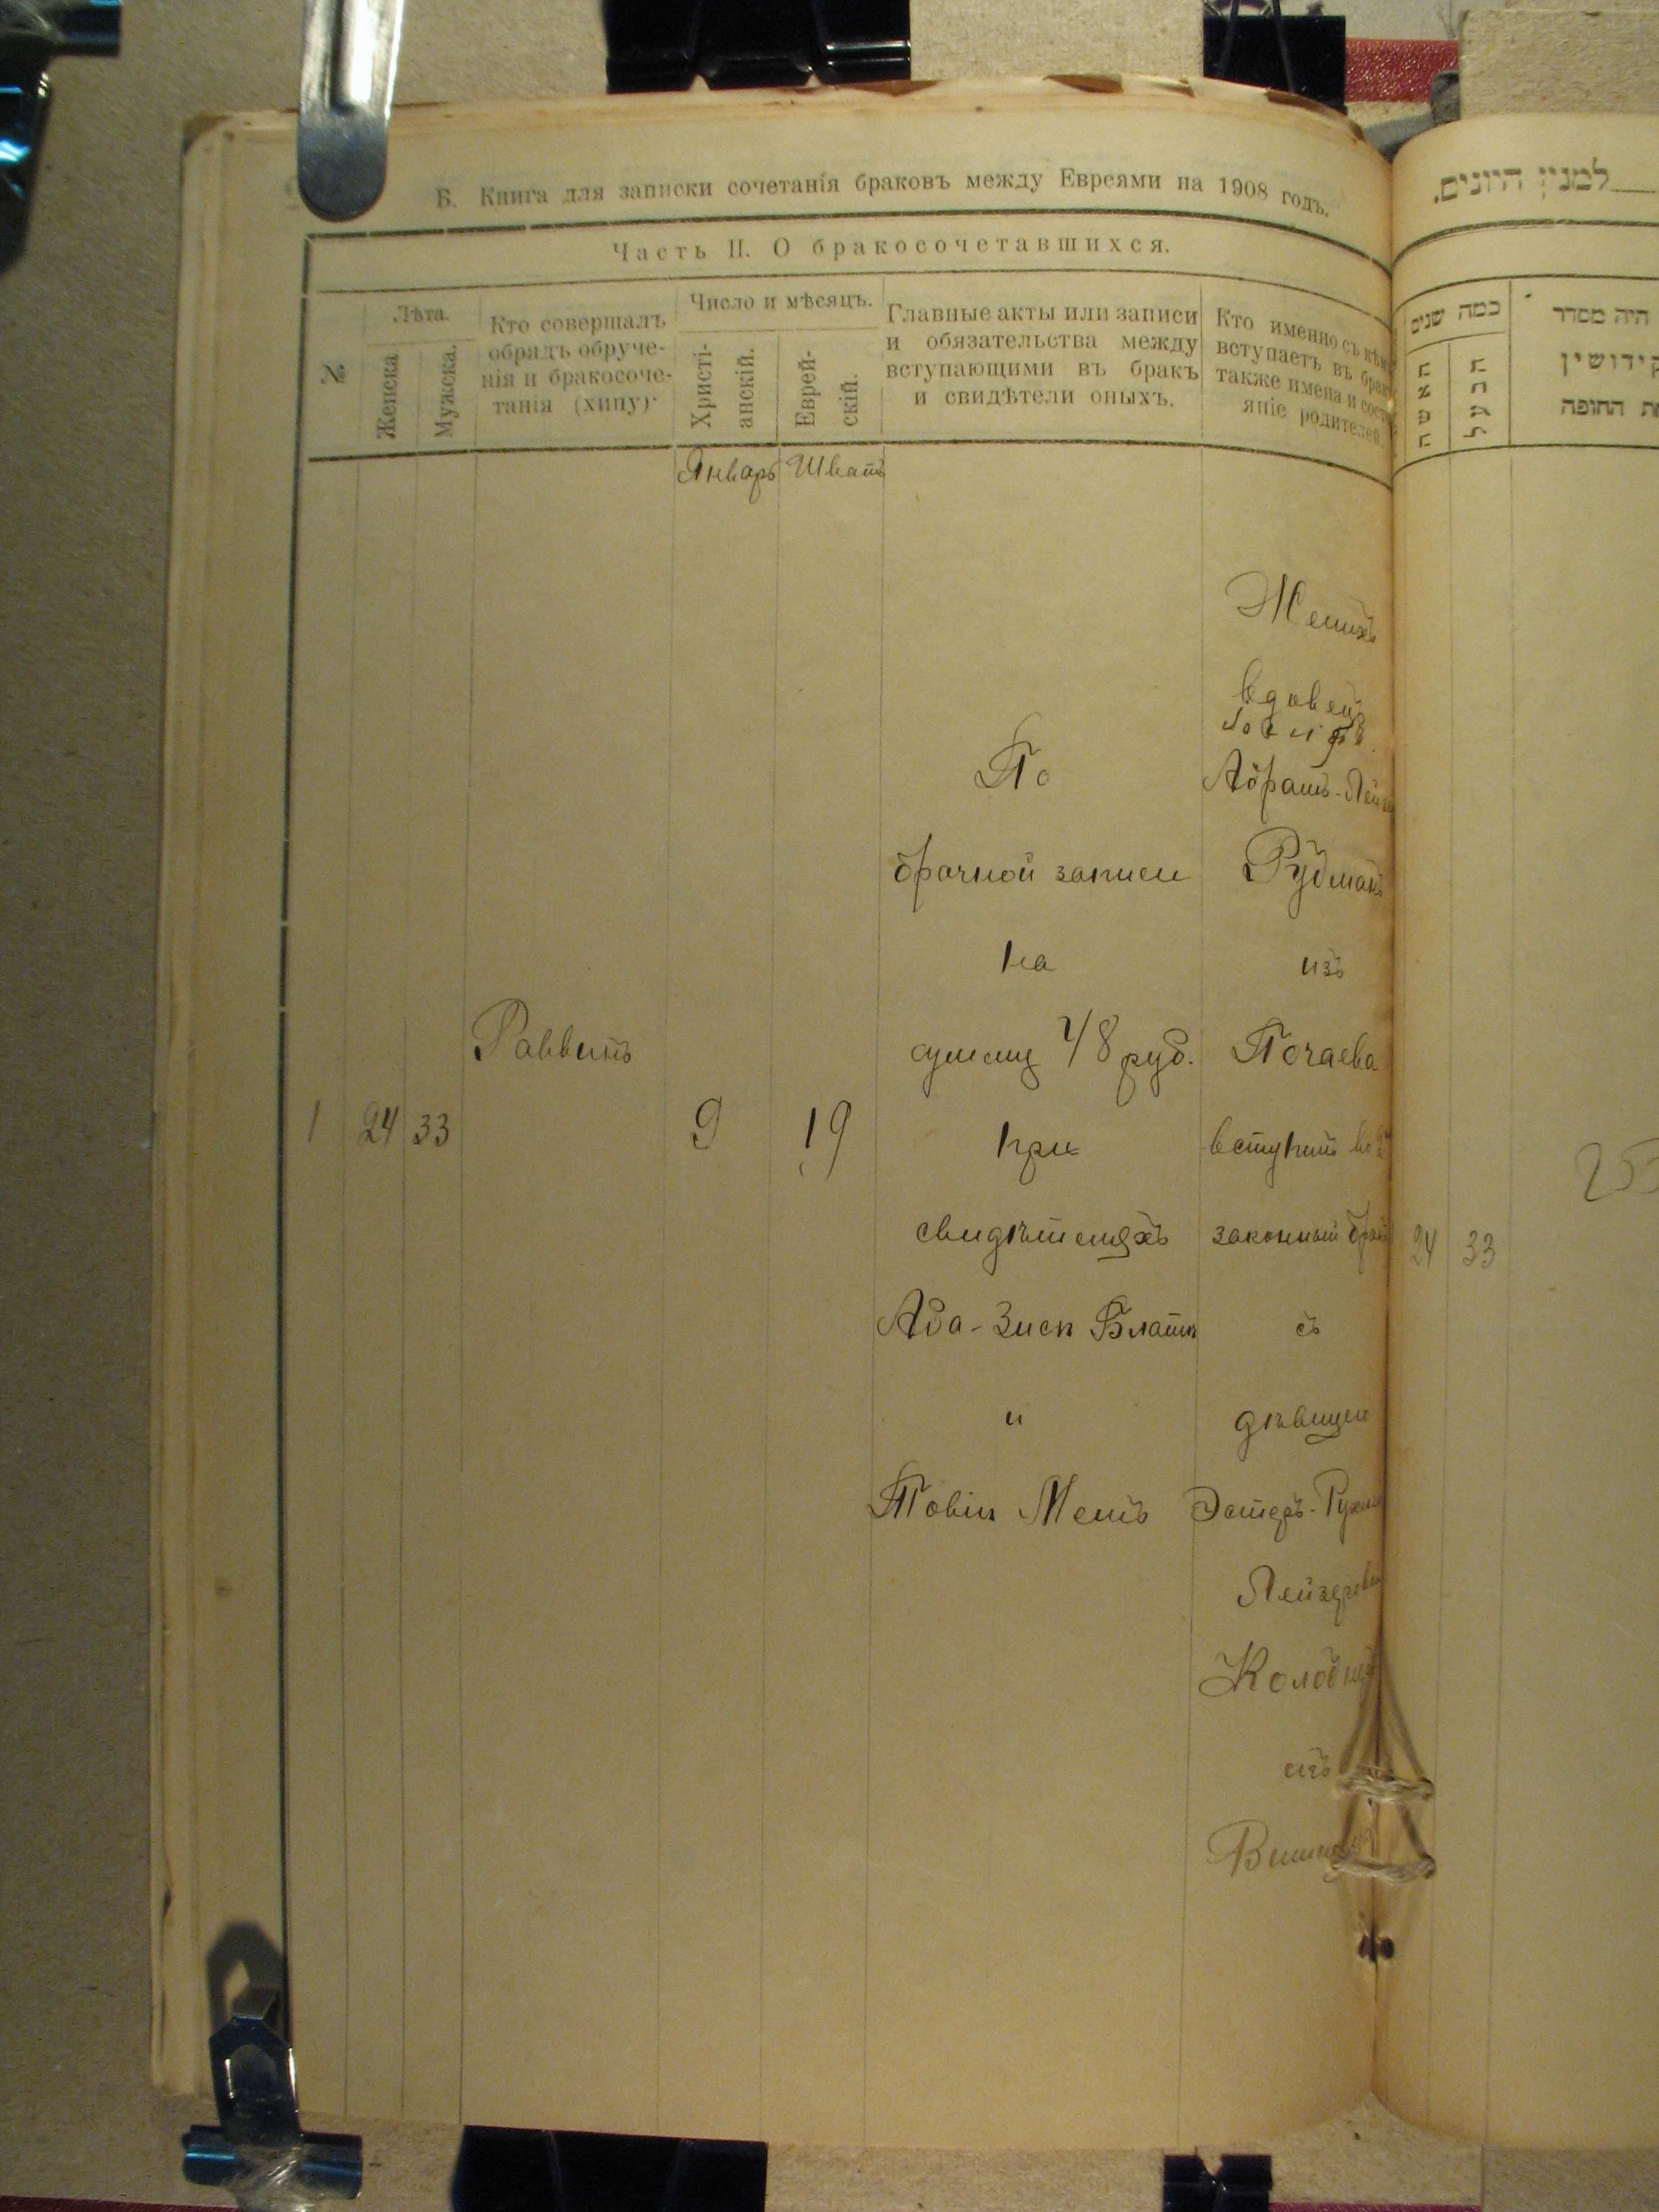 Б. Книга для записки сочетанія браковъ между Евреями на 1908 годъ.
Часть II. О бракосочетавшихся.
№
Лѣта.
Женска
Мужска.
Кто совершалъ
обрядъ обруче-
нія и бракосоче-
танія (хипу)
Число и мѣсяцъ.
Христі-
анскій.
Еврей-
скій.
Главные акты или записи
и обязательства между
вступающими въ бракъ
и свидѣтели оныхъ.
Кто именно съ кѣмъ
вступаетъ въ бракъ
также имена и состо
яніе родителей.
Январь Шватъ
1 24 33
Раввинъ
9 19
По
брачной записи
на
сумму 48 руб.
при
свидѣтеляхъ
Аба-Зися Блатъ
и
Товія Мемъ
Женихъ
вдовец
Абрамъ-
Рудманъ
изъ
Почаева
вступилъ во 2й
законный бракъ
съ
дѣвицею
Эстеръ-
Лейзеров
из
למנין היונים.
כמה שנים
האשה
הבעל
היה מסדר
קידושין
ת החופה
24 33